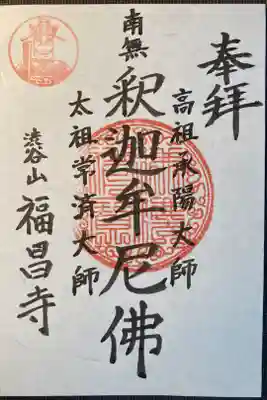 奉拝
高祖承陽大師
南無
釈迦牟尼佛
太祖常済大師
渋谷山
福昌寺